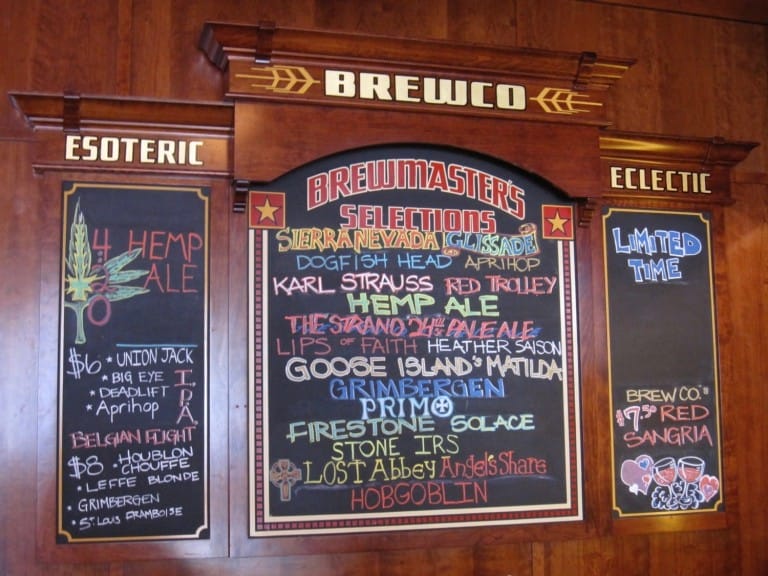 BREWCO
ESOTERIC
420 HEMP
ALE
$6 * UNION JACK
* BIG EYE
* DEADLIFT
* Aprihop
I.P.A.
BELGIAN FLIGHT
$8 * HOUBLON
CHOUFFE
* LEFFE BLONDE
* GRIMBERGEN
* St. Louis FRAMBOISE
BREWMASTER'S
SELECTIONS
SIERRA NEVADA GLISSADE
DOGFISH HEAD APRIHOP
KARL STRAUSS RED TROLLEY
HEMP ALE
THE STRAND 24TH ST. PALE ALE
LIPS OF FAITH HEATHER SAISON
GOOSE ISLAND'S MATILDA
GRIMBERGEN
PRIMO
FIRESTONE SOLACE
STONE IRS
LOST Abbey Angel's Share
HOBGOBLIN
ECLECTIC
LIMITED
TIME
BREW CO.'S
$7.50 RED
SANGRIA